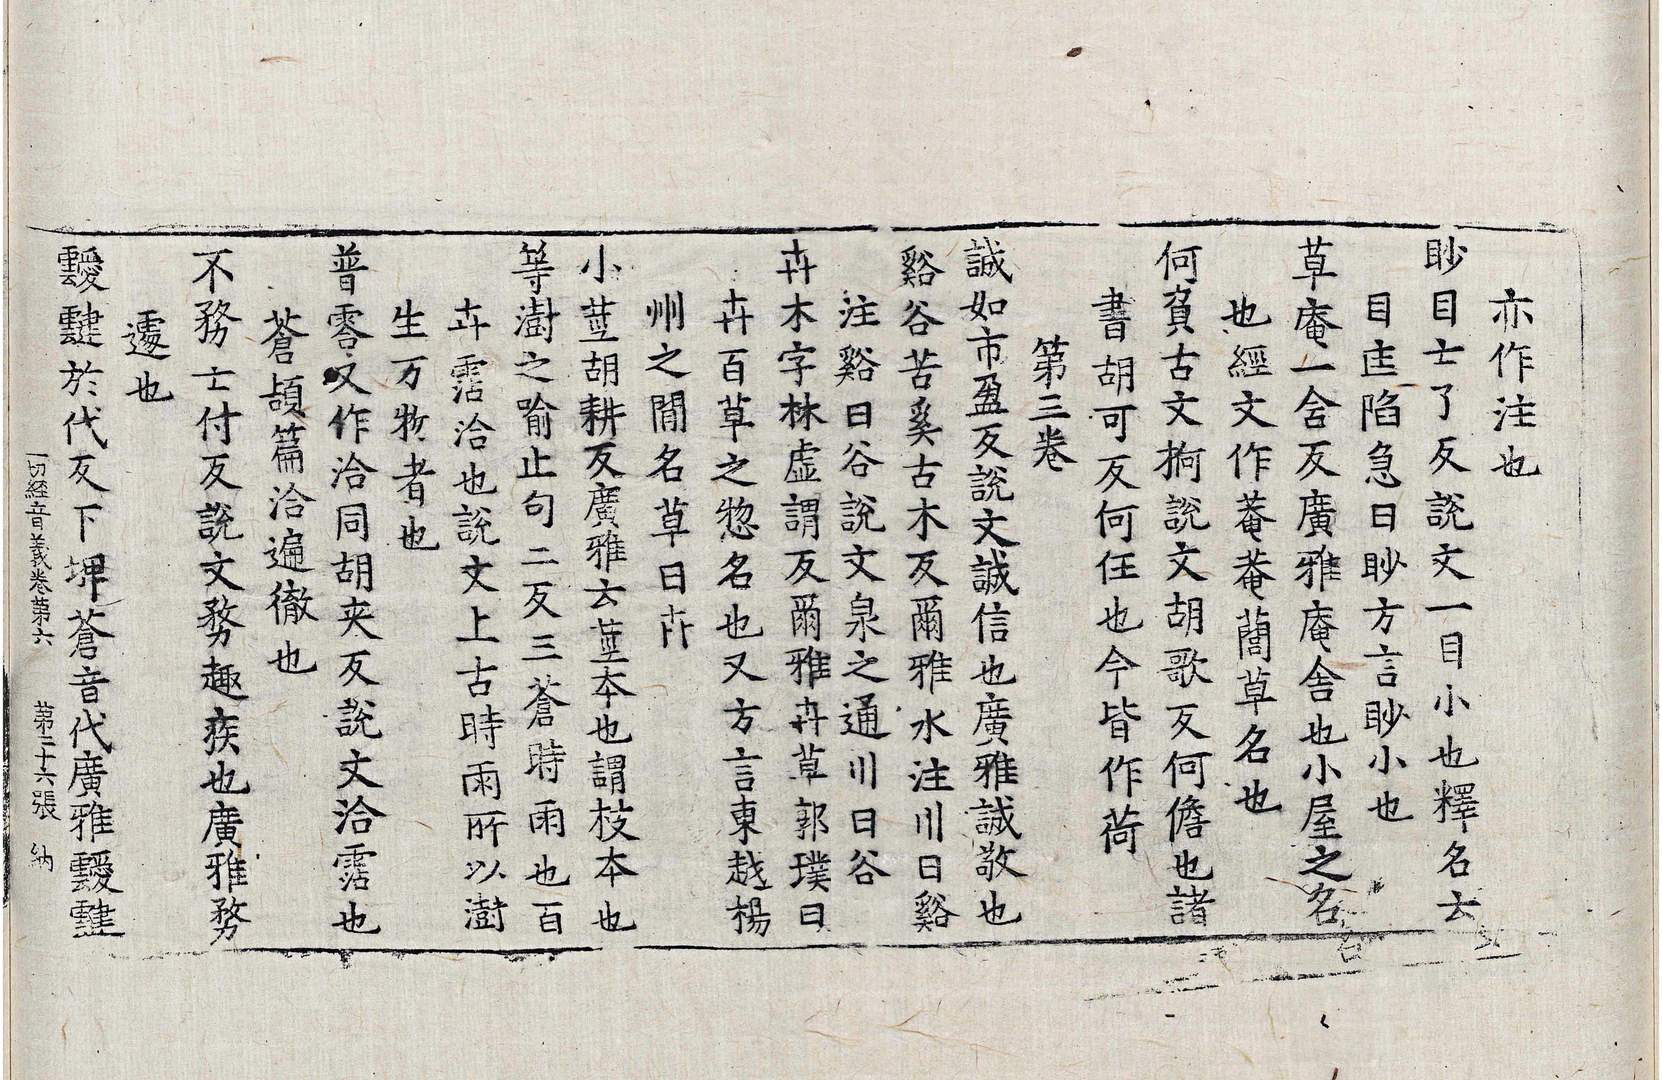 亦作注也
眇目士了反說文一目小也釋名云
目匡陷急曰眇方言眇小也
草庵一舍反廣雅庵舍也小屋之名
也經文作菴菴䕡草名也
何負古文抲說文胡歌反何儋也諸
書胡可反何任也今皆作荷
第三卷
誠如市盈反說文誠信也廣雅誠敬也
谿谷苦奚古木反爾雅水注川曰谿
注谿曰谷說文泉之通川曰谷
卉木字林虛謂反爾雅卉草郭璞曰
卉百草之惣名也又方言東越楊
州之間名草曰卉
小莖胡耕反廣雅云莖本也謂枝本也
等澍之喻止句二反三蒼時雨也百
卉霑洽也說文上古時雨所以澍
生万物者也
普霑又作洽同胡夾反說文洽霑也
蒼頡篇洽遍徹也
不務士付反說文務趣疾也廣雅務
遽也
靉靆於代反下埤蒼音代廣雅靉靆
一切經音義卷第六 第二十六張 納